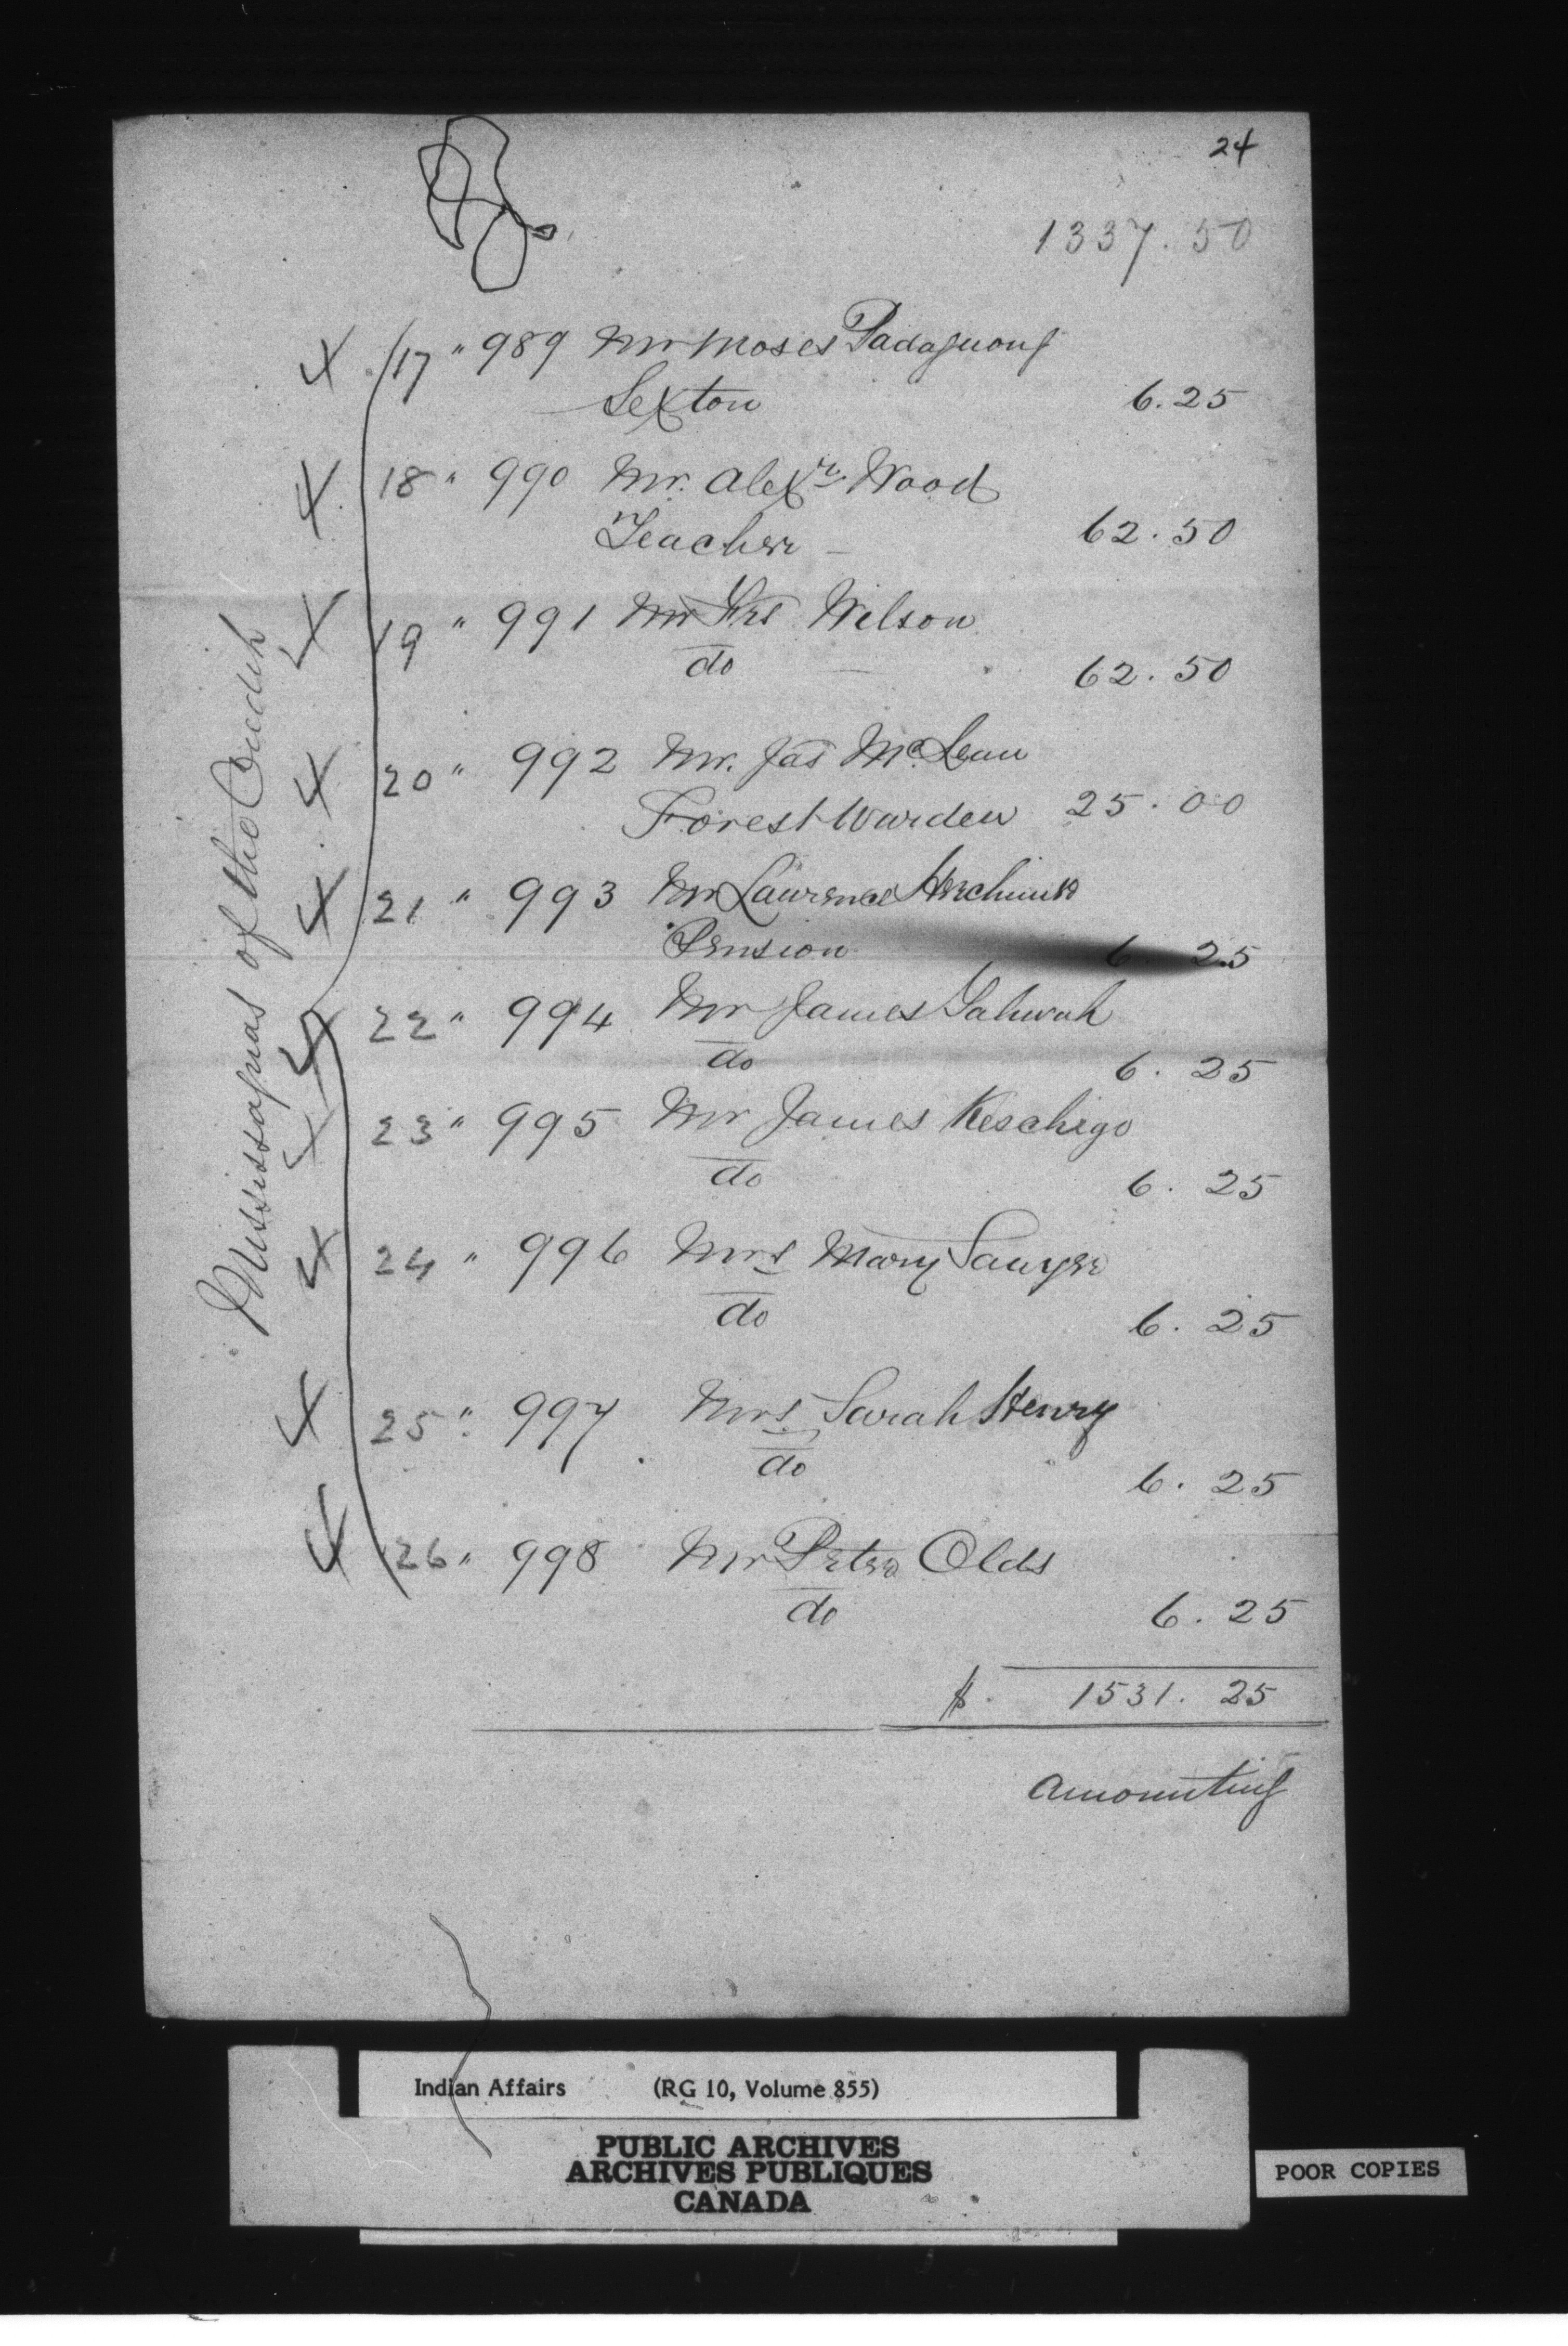 24
1337.50
17 " 989 Mr Moses Padaguong
Sexton 6.25
18 " 990 Mr. Alexr. Wood
Teacher — 62.50
19 " 991 Mr Wilson
do — 62.50
20 " 992 Mr. Jas McLean
Forest Warden 25.00
21 " 993 Mr Lawrence Herchimer
Pension 6 25
22 " 994 Mr James
do 6.25
23 " 995 Mr James Keschego
do 6.25
24 " 996 Mrs Mary Sawyer
do 6.25
25 " 997 Mrs Sarah Henry
do 6.25
26 " 998 Mr Peter Olds
do 6.25
$. 1531.25
amounting
Mississaguas of the Credit
Indian Affairs (RG 10, Volume 855)
PUBLIC ARCHIVES
ARCHIVES PUBLIQUES
CANADA
POOR COPIES